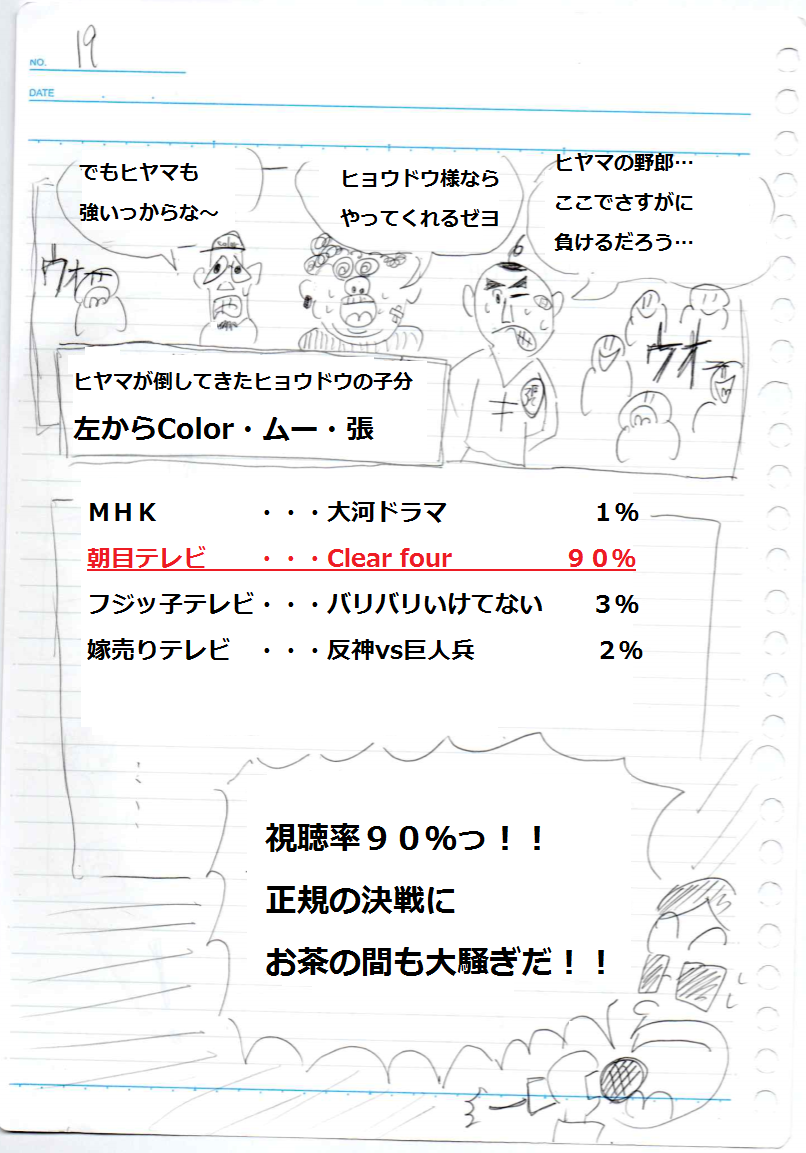 NO. 19
DATE
でもヒヤマも
強いっからな～
ヒョウドウ様なら
やってくれるゼヨ
ヒヤマの野郎…
ここでさすがに
負けるだろう…
ウオー
Color
張
ウオー
ヒヤマが倒してきたヒョウドウの子分
左からColor・ムー・張
ＭＨＫ ・・・大河ドラマ １％
朝目テレビ ・・・Clear four ９０％
フジッ子テレビ・・・バリバリいけてない ３％
嫁売りテレビ ・・・反神vs巨人兵 ２％
視聴率９０％っ！！
正規の決戦に
お茶の間も大騒ぎだ！！